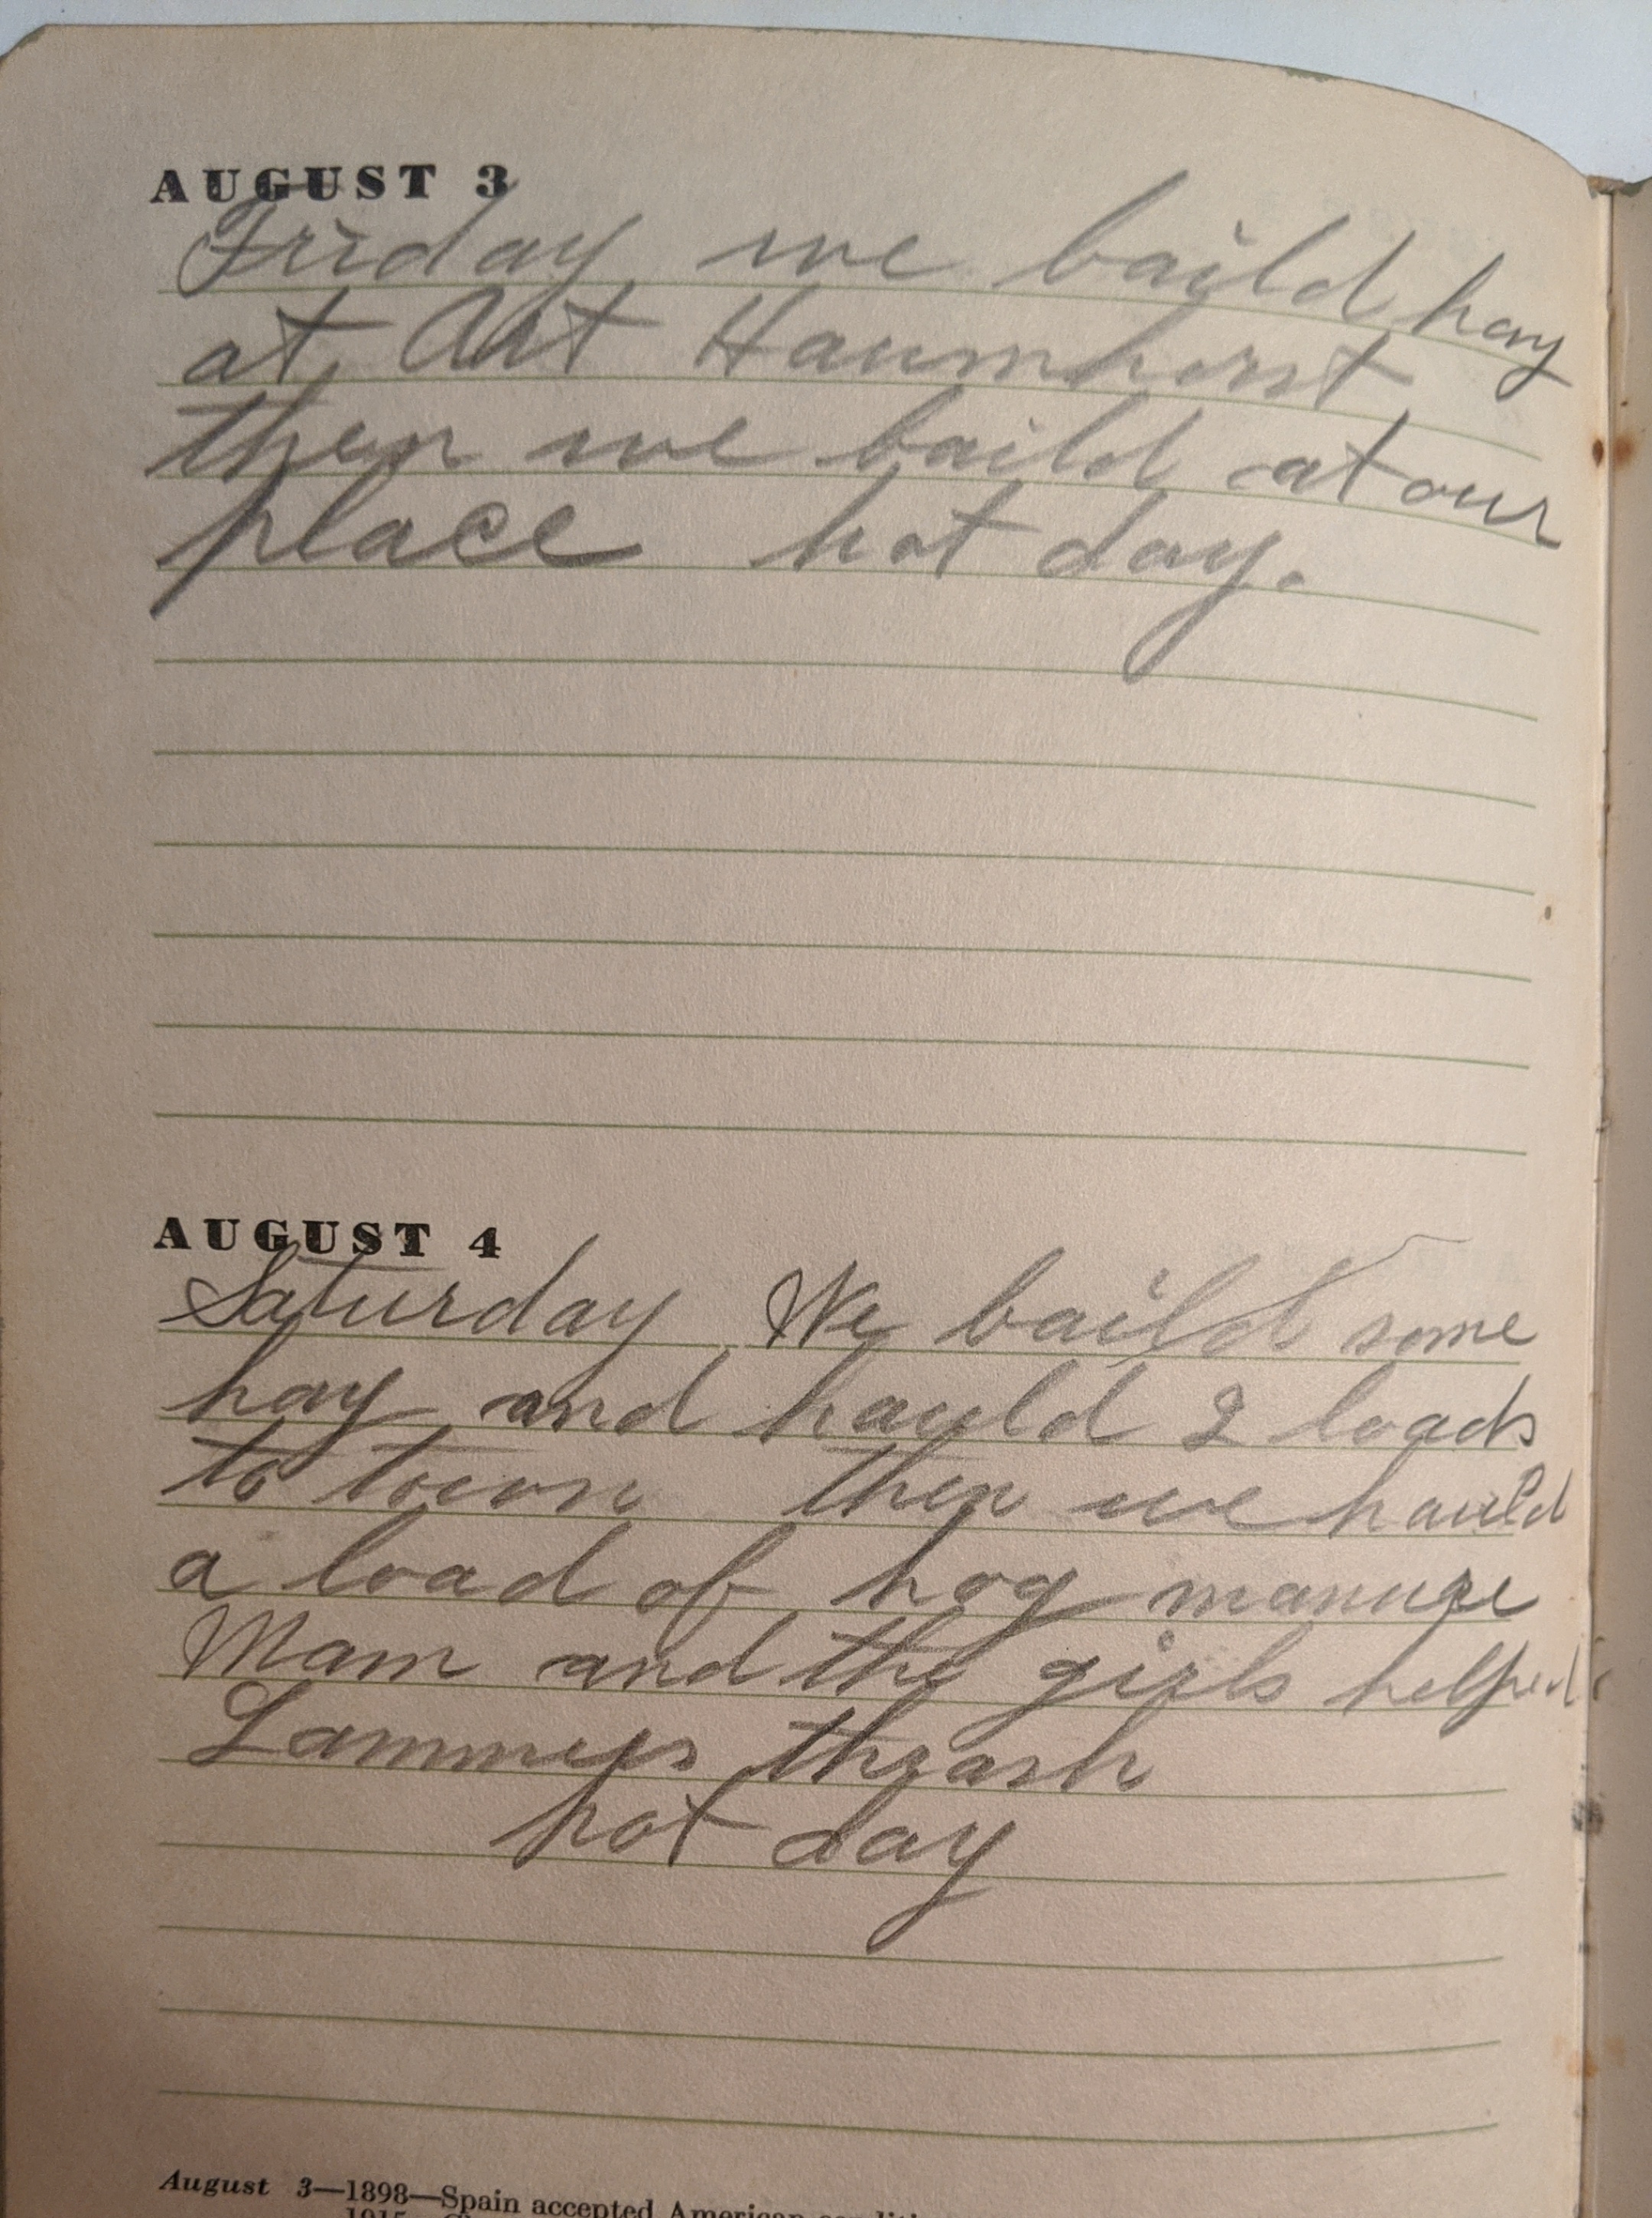 AUGUST 3
Friday we baild hay
at Art Haumherst
then we baild at our
place hot day.
AUGUST 4
Saturday We baild some
hay and hauld 2 loads
to town then we hauld
a load of hog manure
Mam and the girls helped
Lammeys thrash
hot day
August 3—1898—Spain accepted American
1915